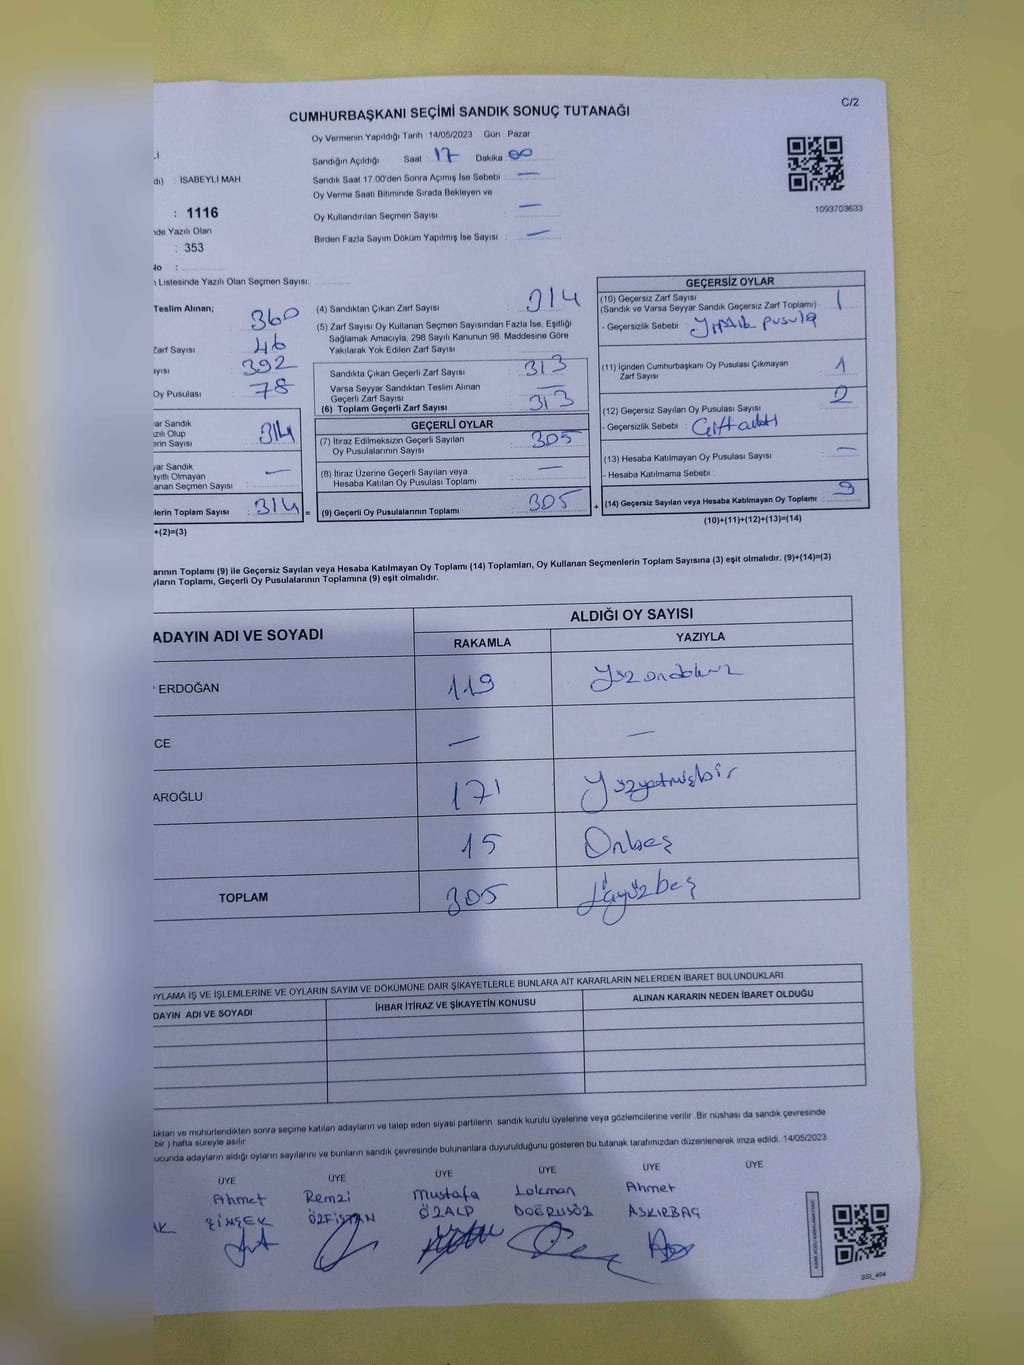 C/2
CUMHURBAŞKANI SEÇİMİ SANDIK SONUÇ TUTANAĞI
Oy Vermenin Yapıldığı Tarih : 14/05/2023 Gün : Pazar
Sandığın Açıldığı Saat 17 Dakika 00
Sandık Saat 17.00'den Sonra Açımış İse Sebebi : —
Oy Verme Saati Bitiminde Sırada Bekleyen ve
Oy Kullandırılan Seçmen Sayısı : —
Birden Fazla Sayım Döküm Yapılmış İse Sayısı : —
1093703633
Lİ
dı) : ISABEYLİ MAH
: 1116
nde Yazılı Olan
: 353
No :
n Listesinde Yazılı Olan Seçmen Sayısı:
Teslim Alınan;
360
Zarf Sayısı 46
ayısı 392
Oy Pusulası 78
yar Sandık
zılı Olup
erin Sayısı 314
yar Sandık
ayıtlı Olmayan
anan Seçmen Sayısı : —
lerin Toplam Sayısı 314 =
+(2)=(3)
(4) Sandıktan Çıkan Zarf Sayısı : 314
(5) Zarf Sayısı Oy Kullanan Seçmen Sayısından Fazla İse, Eşitliği
Sağlamak Amacıyla, 298 Sayılı Kanunun 98. Maddesine Göre
Yakılarak Yok Edilen Zarf Sayısı :
Sandıkta Çıkan Geçerli Zarf Sayısı : 313
Varsa Seyyar Sandıktan Teslim Alınan
Geçerli Zarf Sayısı : —
(6) Toplam Geçerli Zarf Sayısı : 313
GEÇERLİ OYLAR
(7) İtiraz Edilmeksizin Geçerli Sayılan
Oy Pusulalarının Sayısı : 305
(8) İtiraz Üzerine Geçerli Sayılan veya
Hesaba Katılan Oy Pusulası Toplamı : —
(9) Geçerli Oy Pusulalarının Toplamı : 305 +
GEÇERSİZ OYLAR
(10) Geçersiz Zarf Sayısı
(Sandık ve Varsa Seyyar Sandık Geçersiz Zarf Toplamı) : 1
- Geçersizlik Sebebi : pusula
(11) İçinden Cumhurbaşkanı Oy Pusulası Çıkmayan
Zarf Sayısı 1
(12) Geçersiz Sayılan Oy Pusulası Sayısı : 2
- Geçersizlik Sebebi :
(13) Hesaba Katılmayan Oy Pusulası Sayısı : —
- Hesaba Katılmama Sebebi :
(14) Geçersiz Sayılan veya Hesaba Katılmayan Oy Toplamı : 9
(10)+(11)+(12)+(13)=(14)
arının Toplamı (9) ile Geçersiz Sayılan veya Hesaba Katılmayan Oy Toplamı (14) Toplamları, Oy Kullanan Seçmenlerin Toplam Sayısına (3) eşit olmalıdır. (9)+(14)=(3)
yların Toplamı, Geçerli Oy Pusulalarının Toplamına (9) eşit olmalıdır.
ADAYIN ADI VE SOYADI
ALDIĞI OY SAYISI
RAKAMLA YAZIYLA
ERDOĞAN 119
CE — —
AROĞLU 171 Yüzyetmişbir
15 Onbeş
TOPLAM 305 Üçyüzbeş
OYLAMA İŞ VE İŞLEMLERİNE VE OYLARIN SAYIM VE DÖKÜMÜNE DAİR ŞİKAYETLERLE BUNLARA AİT KARARLARIN NELERDEN İBARET BULUNDUKLARI
DAYIN ADI VE SOYADI İHBAR İTİRAZ VE ŞİKAYETİN KONUSU ALINAN KARARIN NEDEN İBARET OLDUĞU
dıktan ve mühürlendikten sonra seçime katılan adayların ve talep eden siyasi partilerin sandık kurulu üyelerine veya gözlemcilerine verilir. Bir nüshası da sandık çevresinde
bir ) hafta süreyle asılır.
ucunda adayların aldığı oyların sayılarını ve bunların sandık çevresinde bulunanlara duyurulduğunu gösteren bu tutanak tarafımızdan düzenlenerek imza edildi. 14/05/2023
ÜYE ÜYE ÜYE ÜYE ÜYE ÜYE
Ahmet Remzi Mustafa Lokman Ahmet
AK ÖZFİSTAN ÖZALP DOĞRUSÖZ ASKIRBAĞ
SSI_404